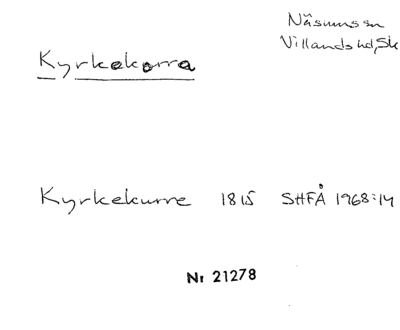 Näsums sn
Villands hd, Sk
Kyrkekorra
Kyrkekurre 1815 SHFÅ 1968:14
Nr 21278